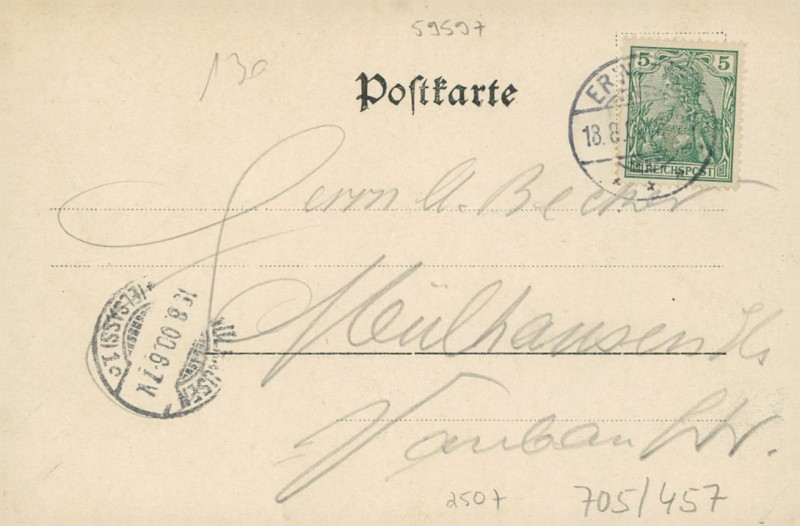 59597
130
Postkarte
5 5
REICHSPOST
18.8.
Herrn A. Becker
Mülhausen i/Els
Vauban Str.
MÜLHAUSEN
(ELSASS) 1.c
19.8.00.6-7V.
2507
705/457